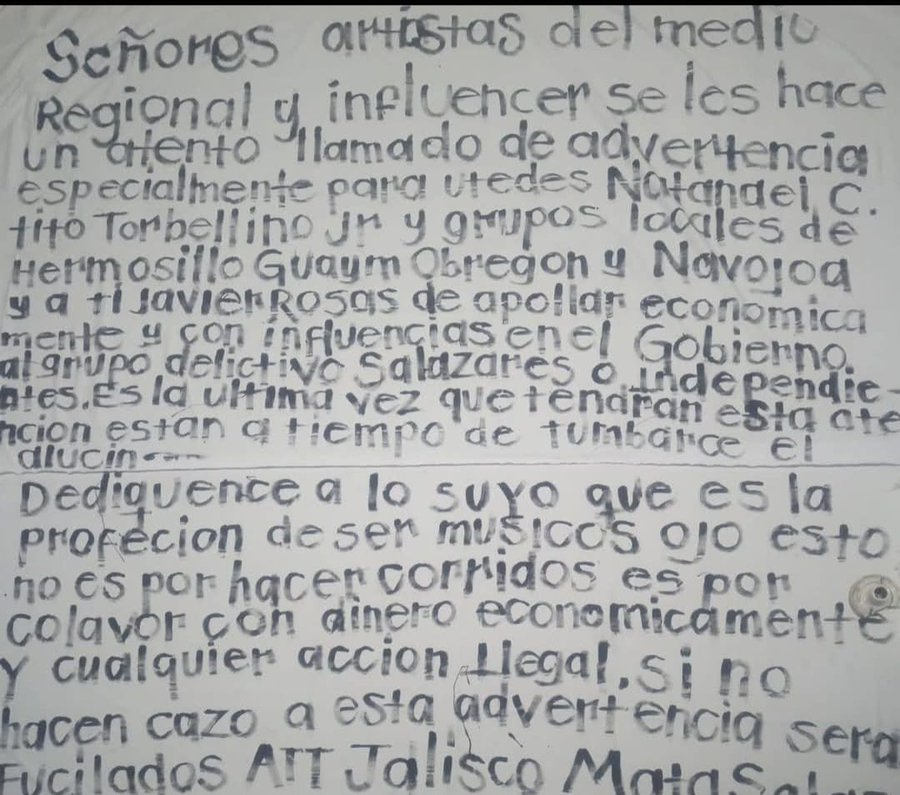 Señores artistas del medio
Regional y influencer se les hace
un atento llamado de advertencia
especialmente para utedes Natandel C.
tito Torbellino Jr y grupos locales de
Hermosillo Guaym Obregon y Navojoa
y a ti Javier Rosas de apollar economica
mente y con influencias en el Gobierno.
al grupo delictivo Salazares o independie-
ntes. Es la ultima vez que tendran esta ate
ncion estan a tiempo de tumbarce el
alucin
Dediquence a lo suyo que es la
profecion de ser musicos ojo esto
no es por hacer corridos es por
colavor con dinero economicamente
y cualquier accion Ilegal, si no
hacen cazo a esta advertencia sera
Fucilados ATT Jalisco Mata